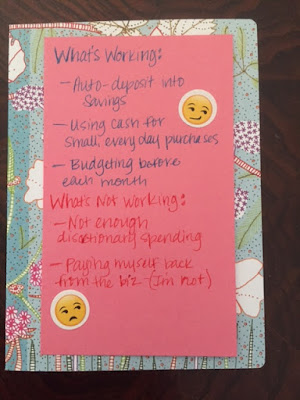 What's Working:
- Auto-deposit into
Savings
- Using cash for
small, every day purchases
- Budgeting before
each month
What's Not Working:
- Not enough
discretionary spending
- Paying myself back
from the biz - (I'm not)